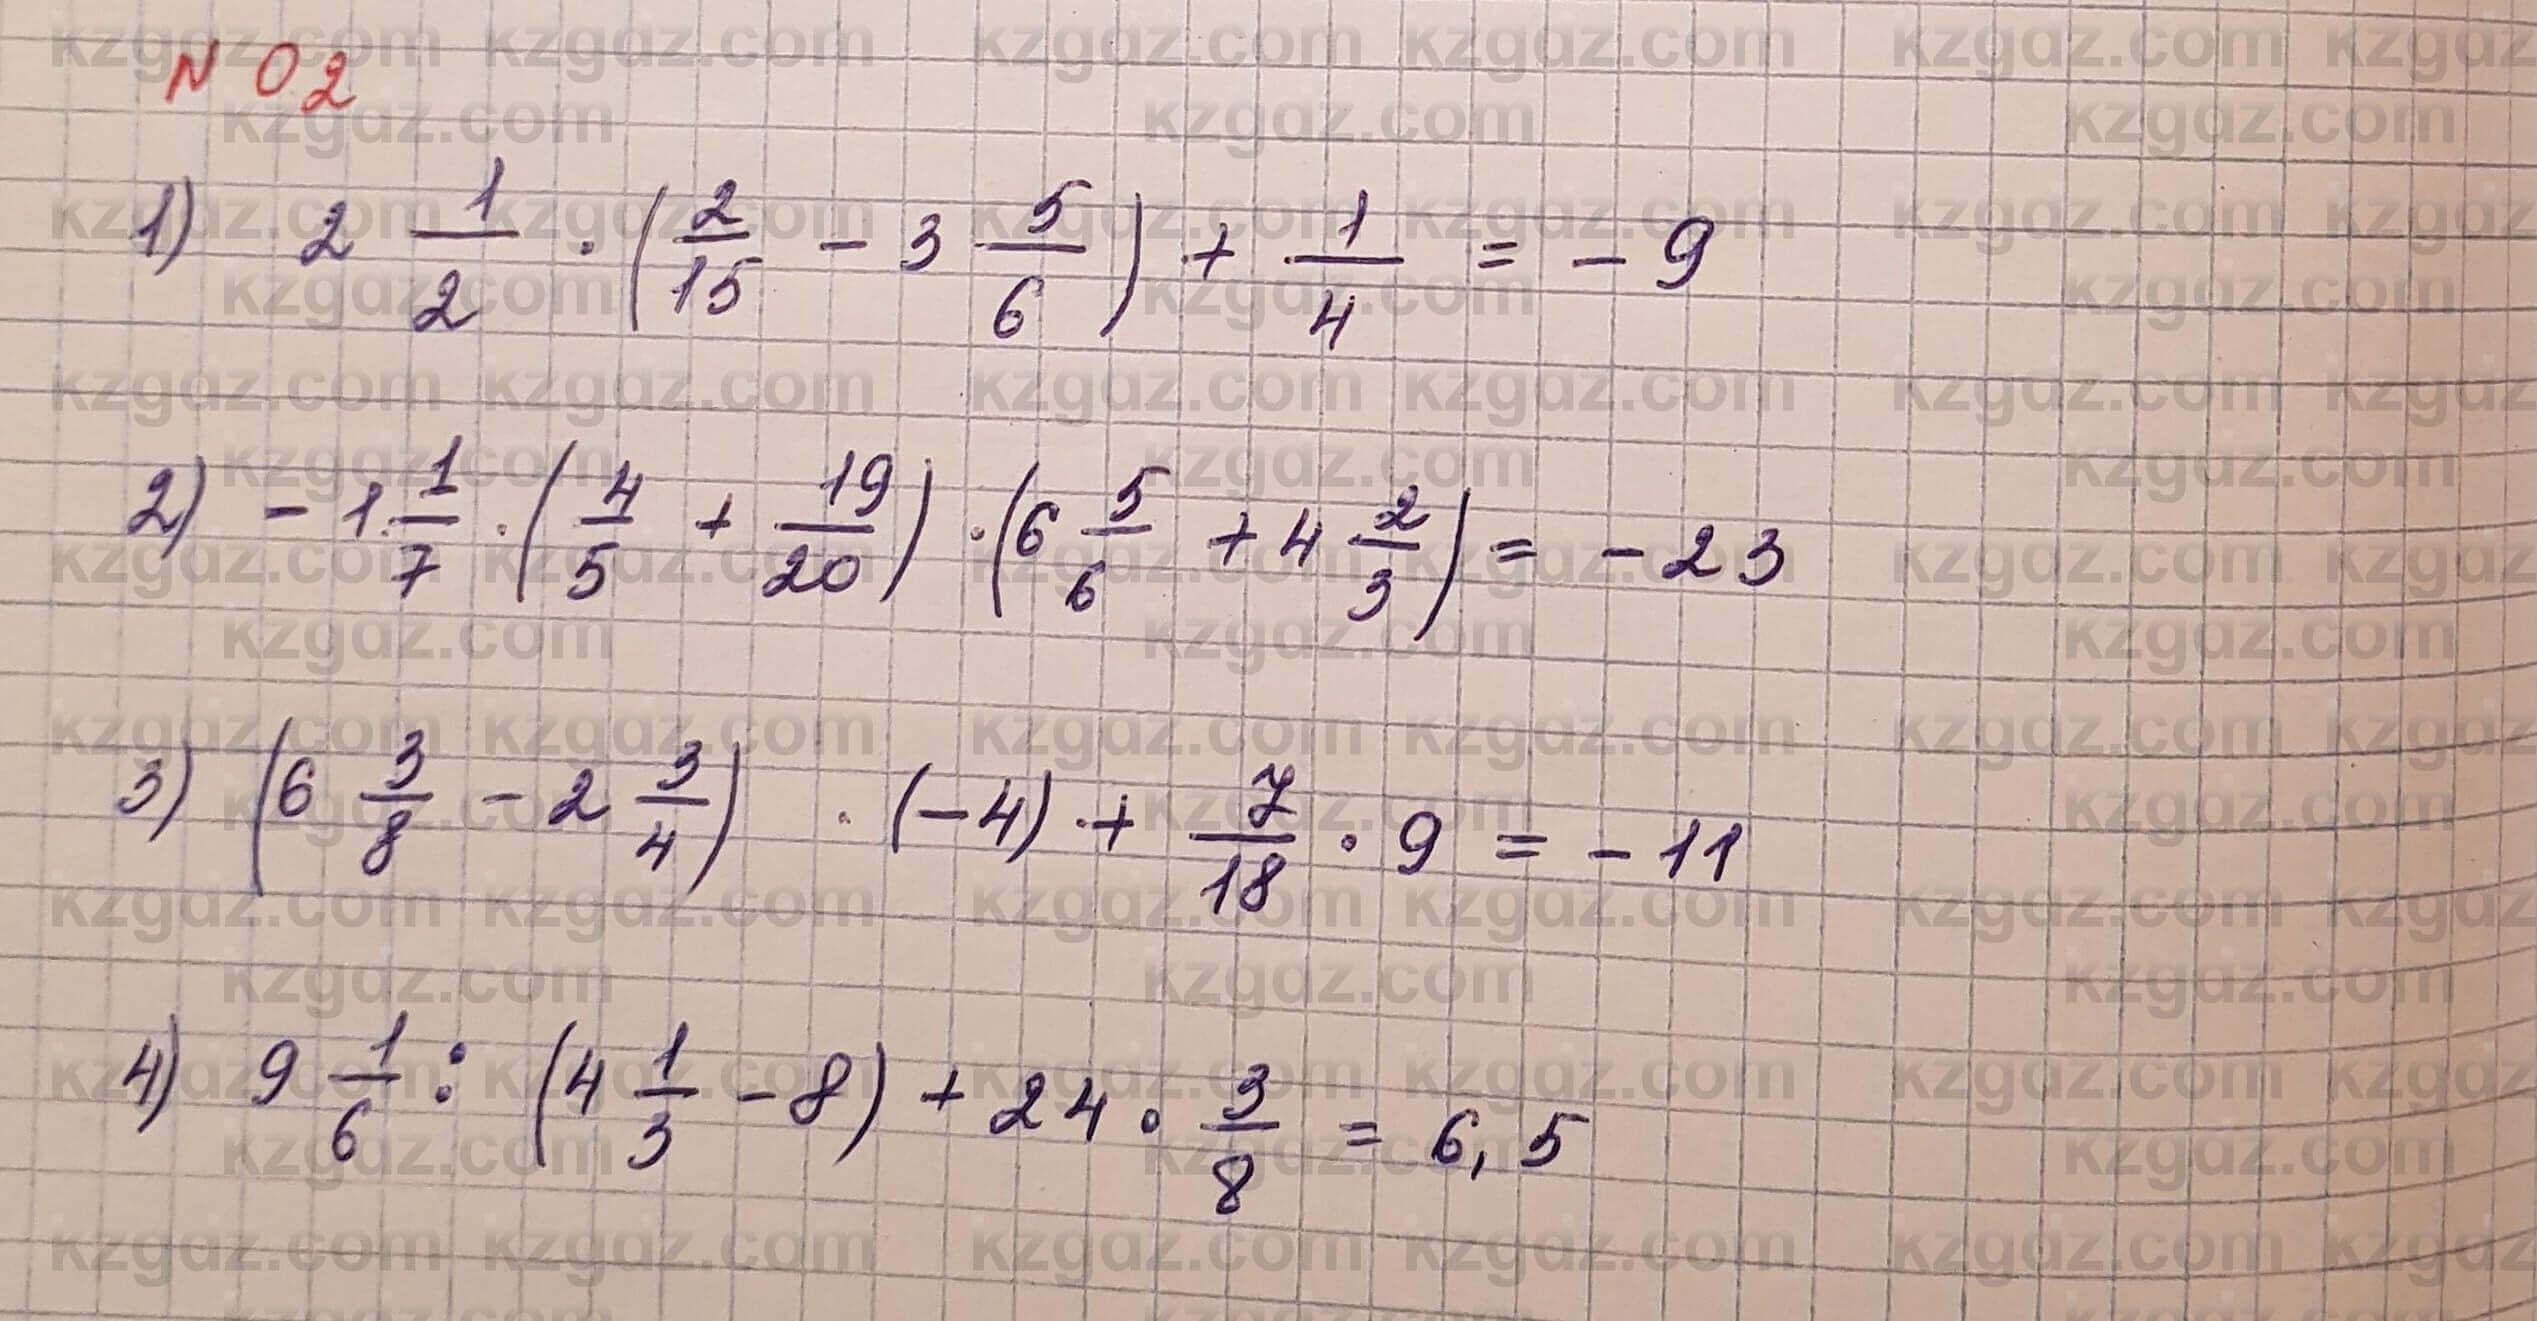 N 0.2
1) 2 1/2 · (2/15 - 3 5/6) + 1/4 = - 9
2) - 1 1/7 · (4/5 + 19/20) · (6 5/6 + 4 2/3) = - 23
3) (6 3/8 - 2 3/4) · (-4) + 7/18 · 9 = - 11
4) 9 1/6 : (4 1/3 - 8) + 24 · 3/8 = 6,5
kzgdz.com